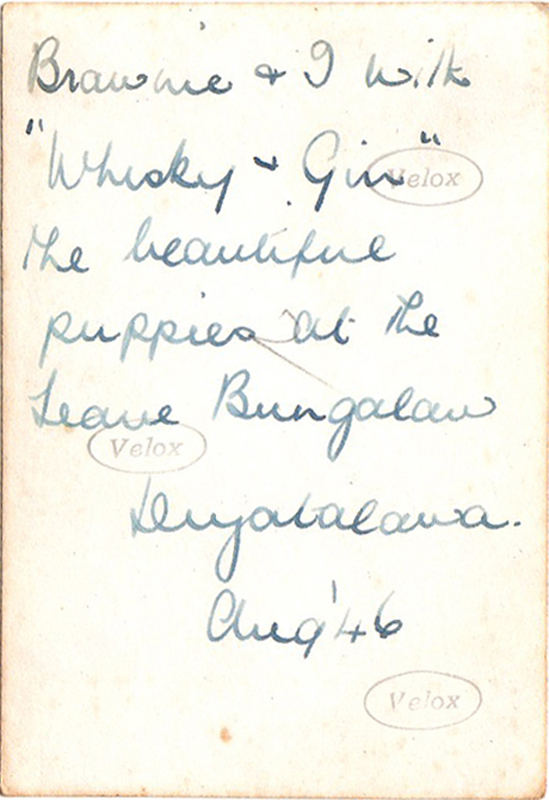 Brownie & I with
"Whisky & Gin"
Velox
the beautiful
puppies at the
Leave Bungalow
Velox
Diyatalawa.
Aug '46
Velox